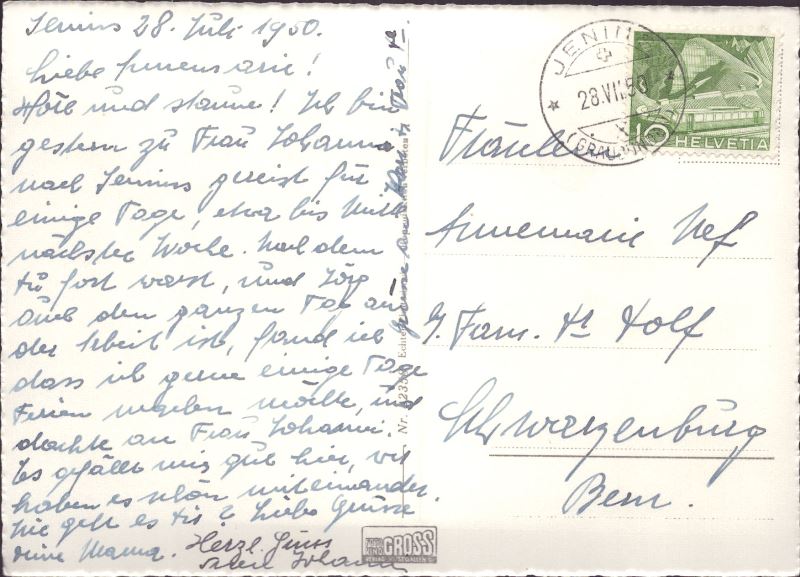 Jenins 28. Juli 1950.
Liebe Annemarie!
Hör und staune! Ich bin
gestern zu Frau Johanni
nach Jenins gereist für
einige Tage, etwa bis Mitte
nächster Woche. Nach dem
Du fort warst, und Jörg
auch den ganzen Tag an
der Arbeit ist, fand ich
dass ich gerne einige Tage
Ferien machen möchte, und
dachte an Frau Johanni.
Es gefällt mir gut hier, wir
haben es schön miteinander.
Wie geht es Dir? Liebe Grüsse
deine Mama. Herzl. Gruss
Johanni
Nr. Echte
GROSS
JENINS
28.VII.50
(GRAUBÜNDEN)
10 HELVETIA
Fräulein
Annemarie Nef
b/ Fam. Dr Dolf
Schwarzenburg
Bern.